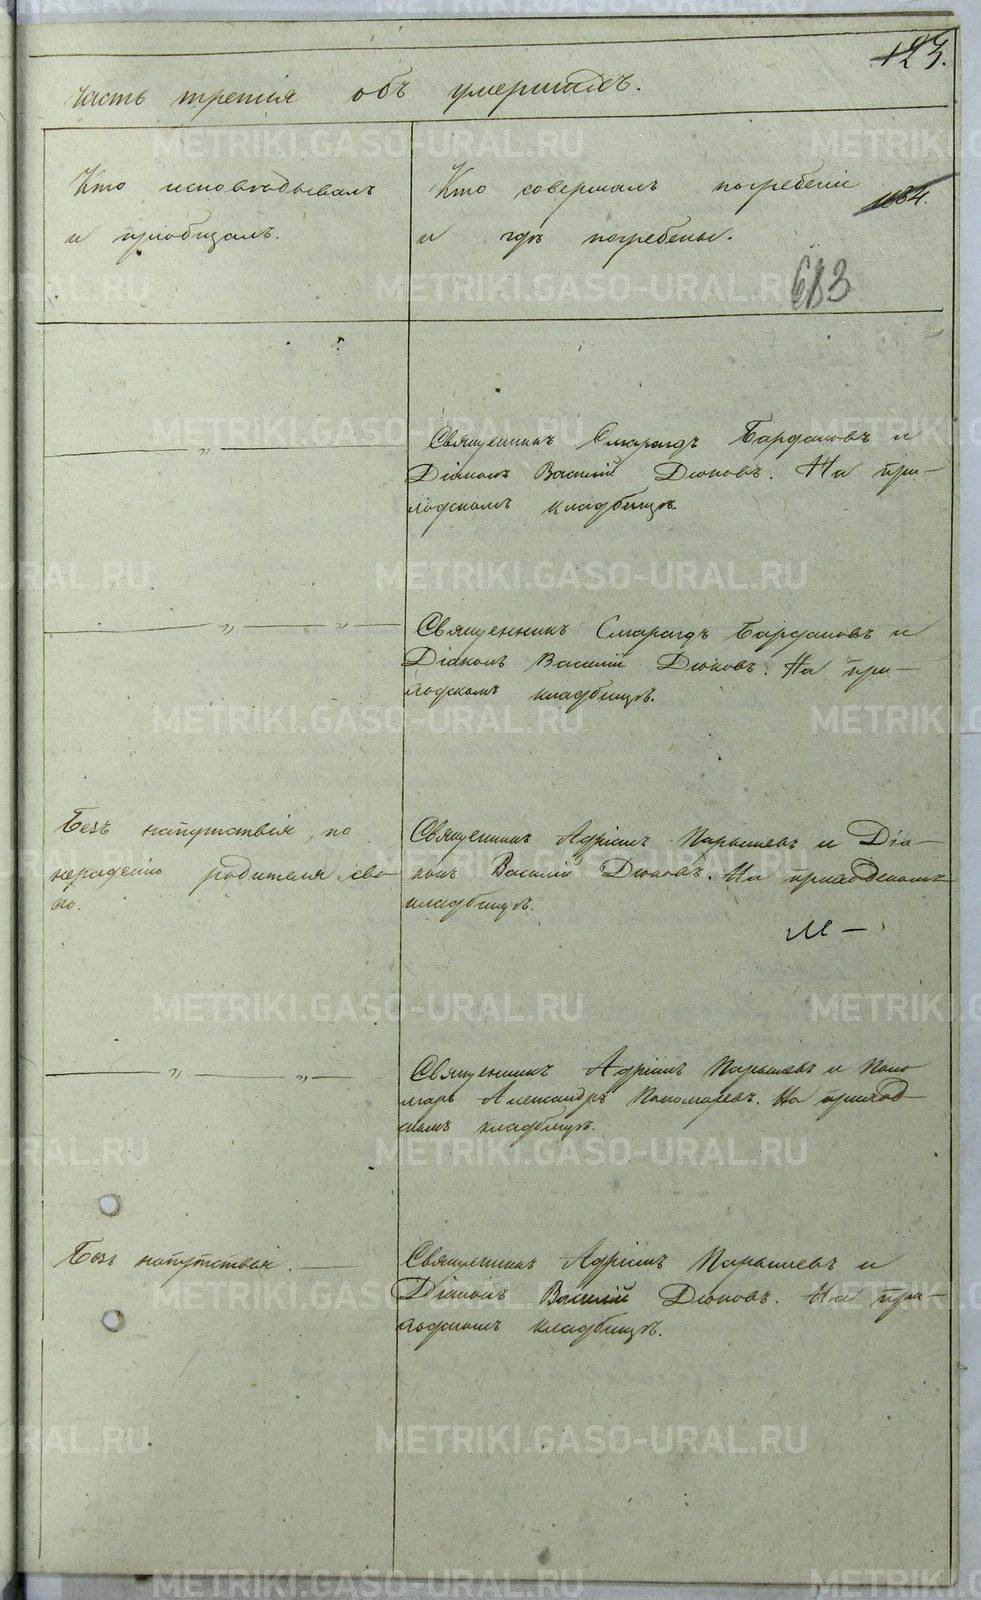 123.
Часть третія объ умершихъ.
Кто исповѣдывалъ
и пріобщалъ.
Кто совершалъ погребеніе
и гдѣ погребены.
1884.
683
Священникъ Смарагдъ Бардаковъ и
Діаконъ Василій Дюковъ. На при-
ходскомъ кладбищѣ.
Священникъ Смарагдъ Бардаковъ и
Діаконъ Василій Дюковъ. На при-
ходскомъ кладбищѣ.
Безъ напутствія, по
нерадѣнію родителя сво
его.
Священникъ Адріанъ Парышевъ и Діа-
конъ Василій Дюковъ. На приходскомъ
кладбищѣ.
Священникъ Адріанъ Парышевъ и Поно
марь Александръ Пономаревъ. На приход
скомъ кладбищѣ.
Безъ напутствія.
Священникъ Адріанъ Парышевъ и
Діаконъ Василій Дюковъ. На при-
ходскомъ кладбищѣ.
METRIKI.GASO-URAL.RU